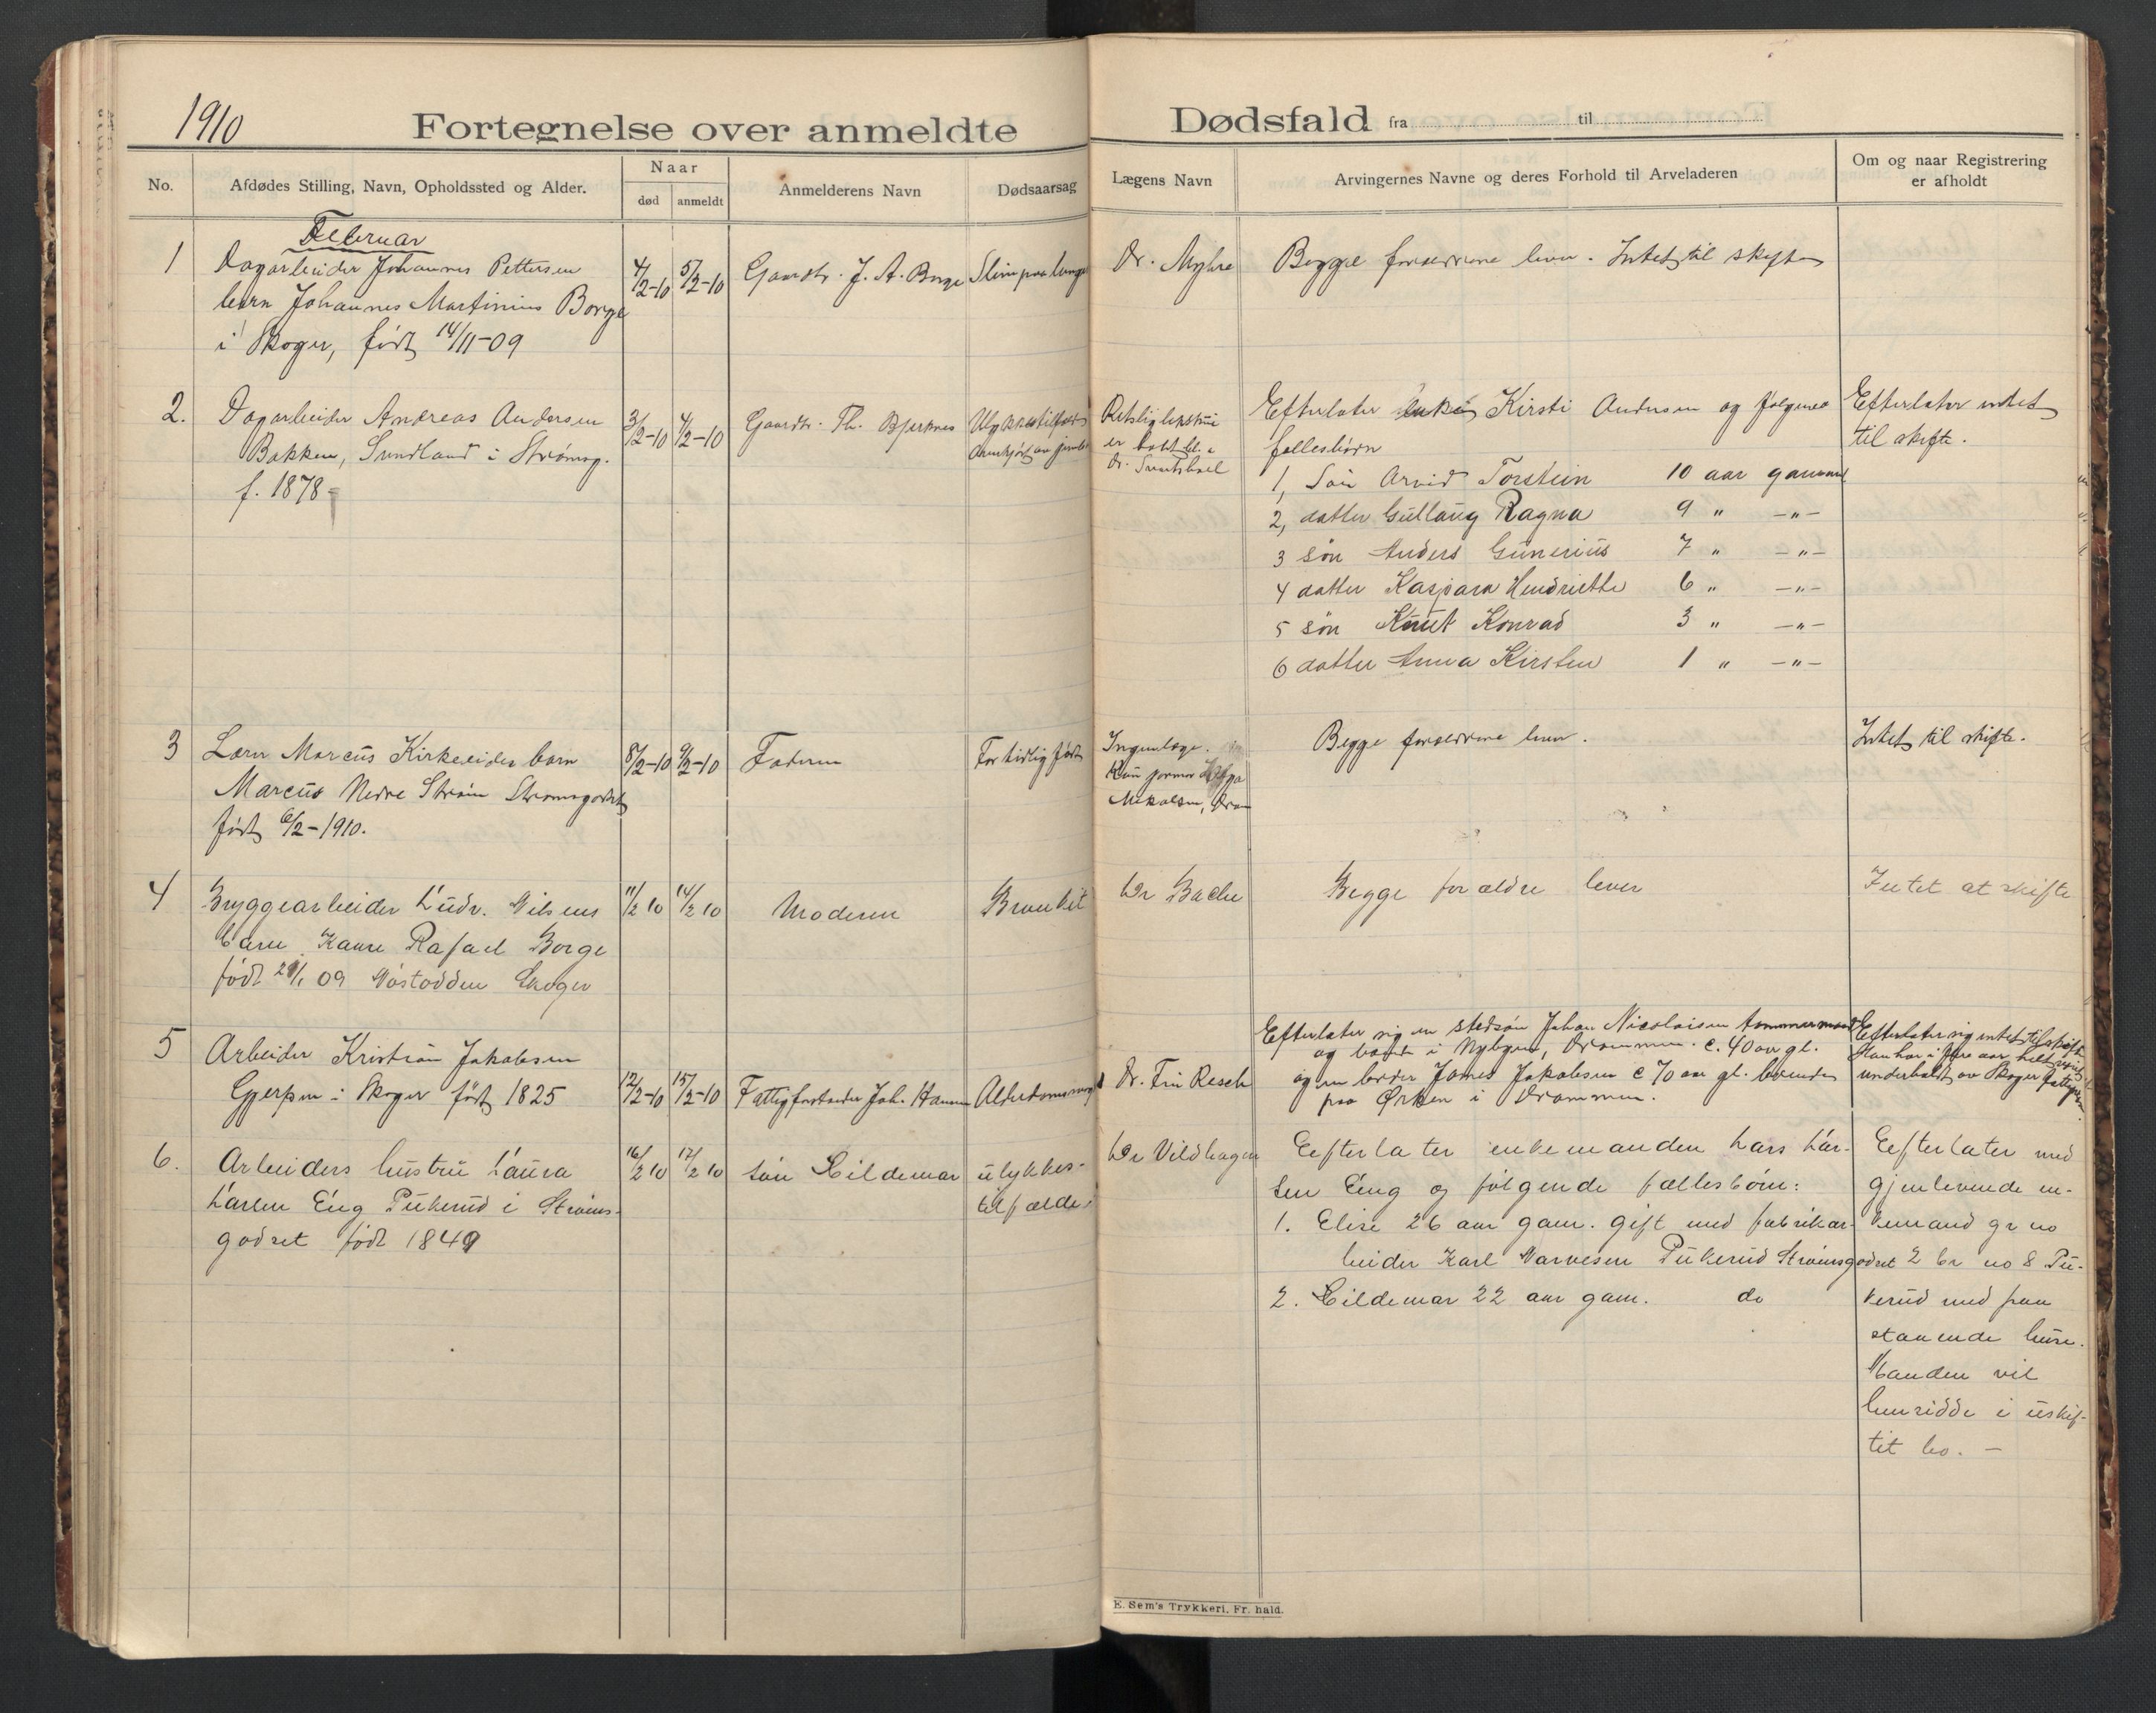 1910
Fortegnelse over anmeldte Dødsfald fra til
No.
Afdødes Stilling, Navn, Opholdssted og Alder.
Naar
død
anmeldt
Anmelderens Navn
Dødsaarsag
Lægens Navn
Arvingernes Navne og deres Forhold til Arveladeren
Om og naar Registrering
er afholdt
Februar
1
Dagarbeider Johannes Pettersen
barn Johannes Martinius Borge
i Skoger, født 14/11-09
4/2-10
5/2-10
Gaardbr. J. A. Borge
Slim paa lunge
Dr. Myhre
Begge forældrene lever. Intet til skifte
2.
Dagarbeider Andreas Andersen
Bakken, Sundland i Strømsg.
f. 1878
3/2-10
4/2-10
Gaardbr. Th. Bjerknes
Ulykkestilfælde
Retslig
er
Dr.
Efterlater enke Kirsti Andersen og følgende
fellesbørn
1, Søn Arvid Torstein 10 aar gammel
2, datter Gullaug Ragna 9 " -"-
3 søn Anders Gunerius 7 " -"-
4 datter Kaspara Hendriette 6 " -"-
5 søn Knut Konrad 3 " -"-
6 datter Anna Kirsten 1 " -"-
Efterlater intet
til skifte.
3
Marcus Kirkeeider barn
Marcus Nedre Strøm Strømsgodset
født 6/2-1910.
8/2-10
9/2-10
Faderen
For tidlig født
Ingen læge.
Kun jormor
Mikalsen, Dram
Begge forældrene lever.
Intet til skifte.
4
Bryggearbeider Ludv. Nilsens
barn Kaare Rafael Borge
født 09 Skoger
11/2 10
14/2 10
Moderen
Bronkit
Dr Bache
Begge forældre lever
Intet at skifte
5
Arbeider Kristian Jakobsen
Gjerpen i Skoger født 1825
12/2-10
15/2-10
Fattigforstander Joh. Hansen
Alderdomssvaghed
Dr. Fin Resch
Efterlater sig en stedsøn Johan Nicolaisen tømmermand
og boende i Nybyen, Drammen. c. 40 aar gl.
og en broder James Jakobsen c 70 aar gl. boende
paa Ørken i Drammen.
Efterlater sig intet til skifte
Han har i flere aar helt været
underholdt av Skoger fattigvæsen
6.
Arbeiders hustru Laura
Larsen Eng Pukerud i Strøms-
godset født 1849
16/2 10
17/2 10
søn Hildemar
ulykkes-
tilfælde
Dr Vildhagen
Eefterlater enkemanden Lars Lar-
sen Eng og følgende fællesbørn:
1. Elise 26 aar gam. gift med fabrikar-
beider Karl Narvesen Pukerud Strømsgodset
2. Hildemar 22 aar gam. do
Eefterlater med
gjenlevende en-
kemand gr no
2 br no 8 Pu-
kerud med paa
staaende huse.
Manden vil
hensidde i uskif-
tet bo. -
E. Sem's Trykkeri, Fr. hald.